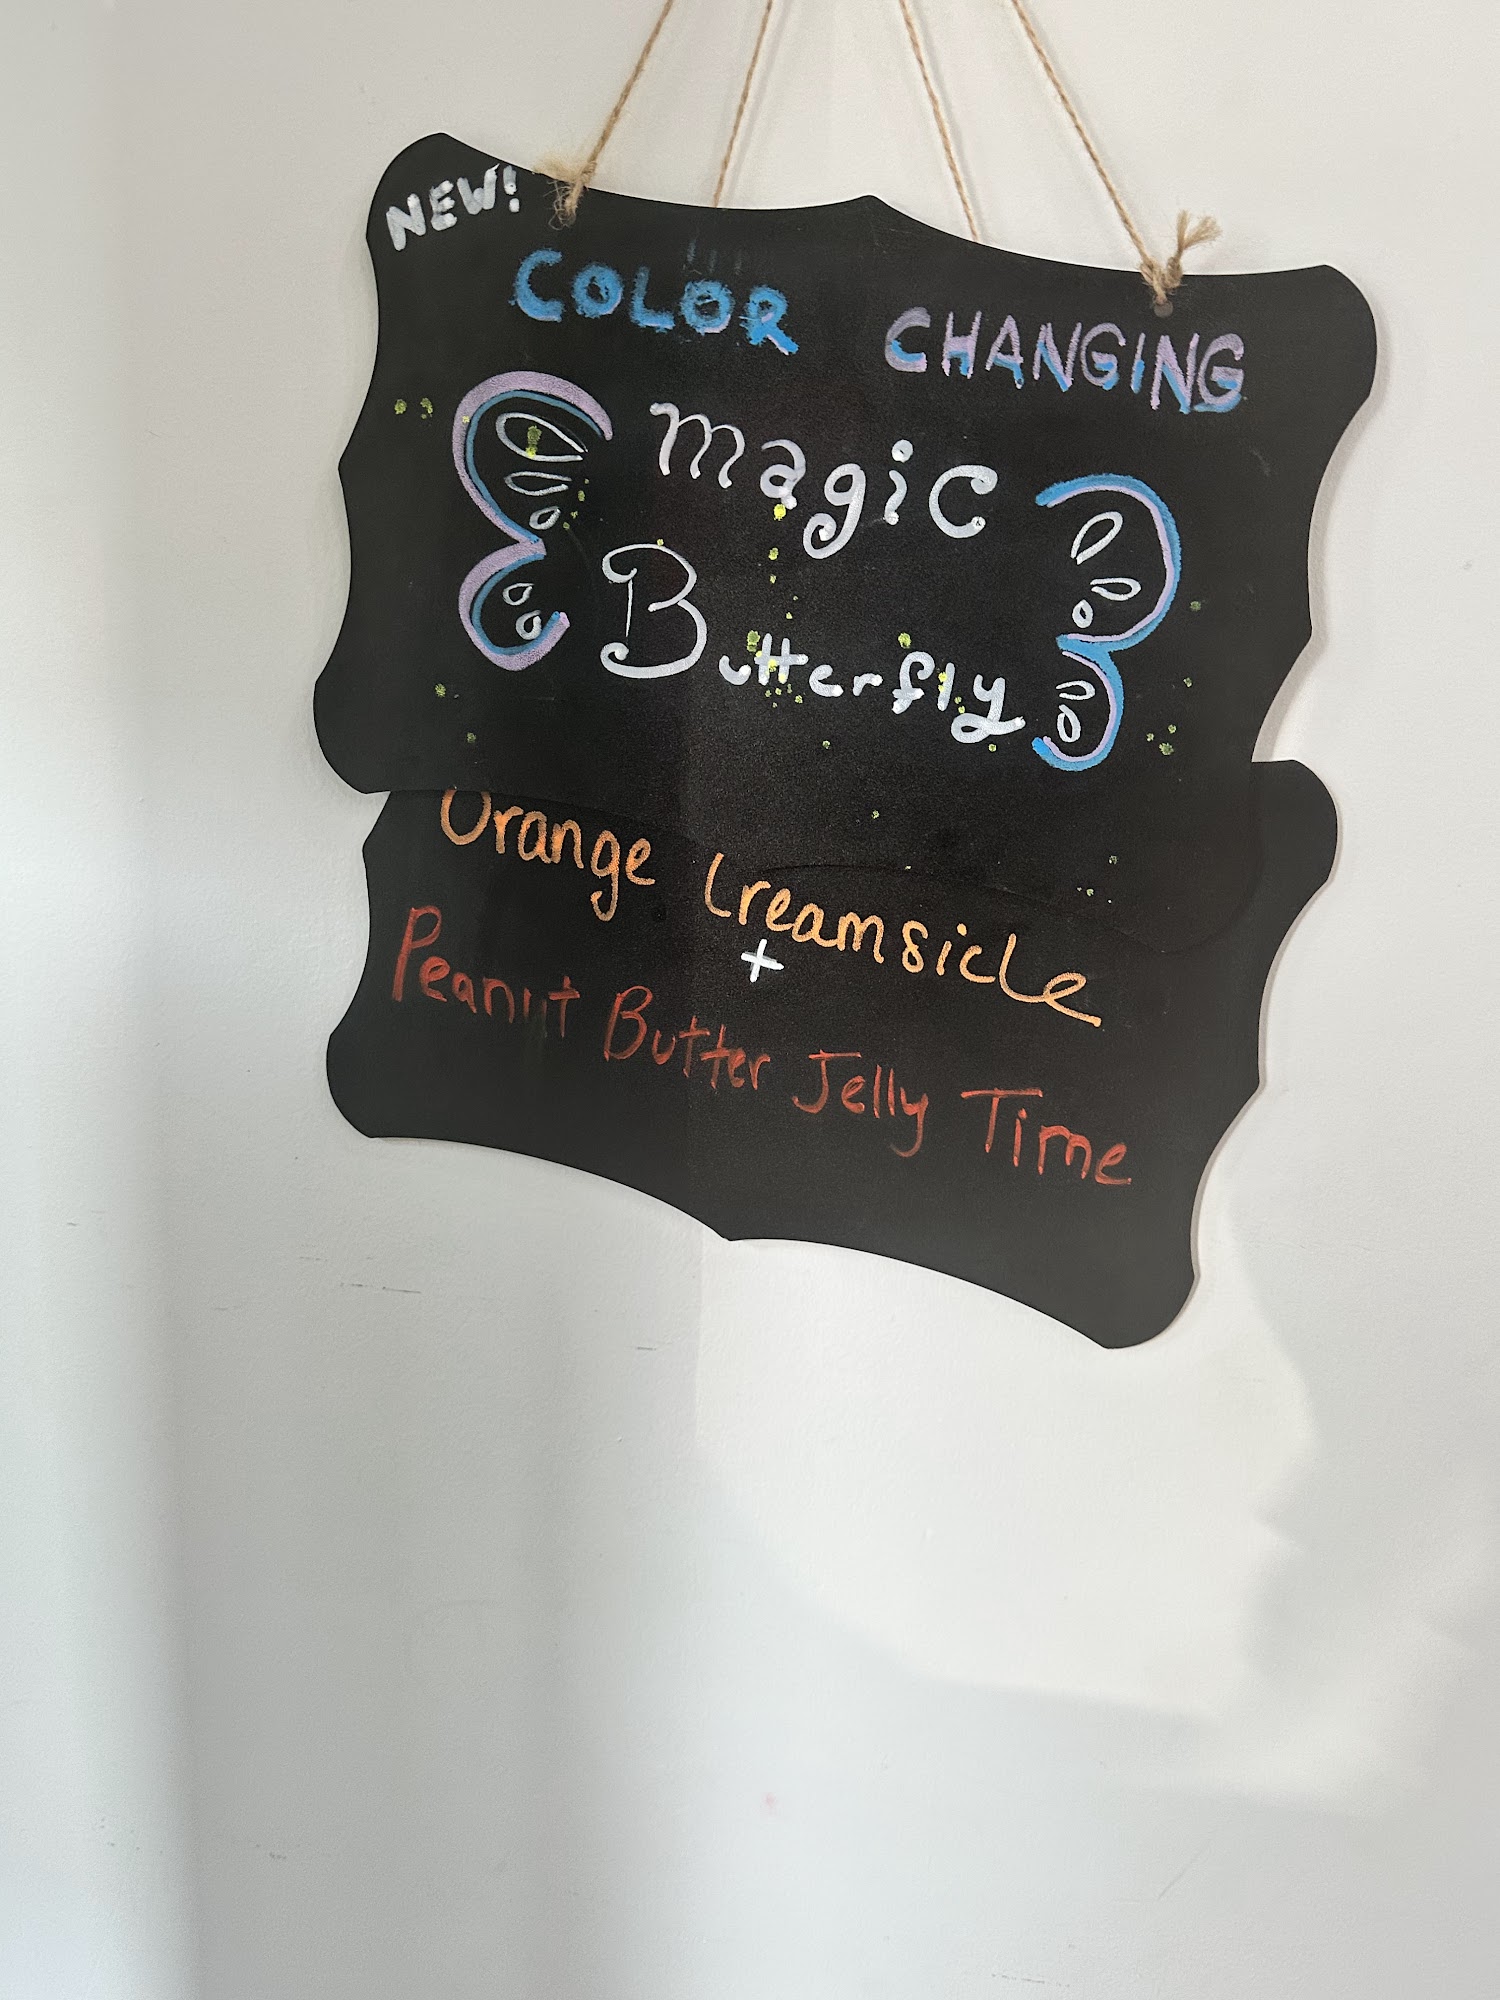 NEW!
COLOR CHANGING
magic
Butterfly
Orange Creamsicle
+
Peanut Butter Jelly Time